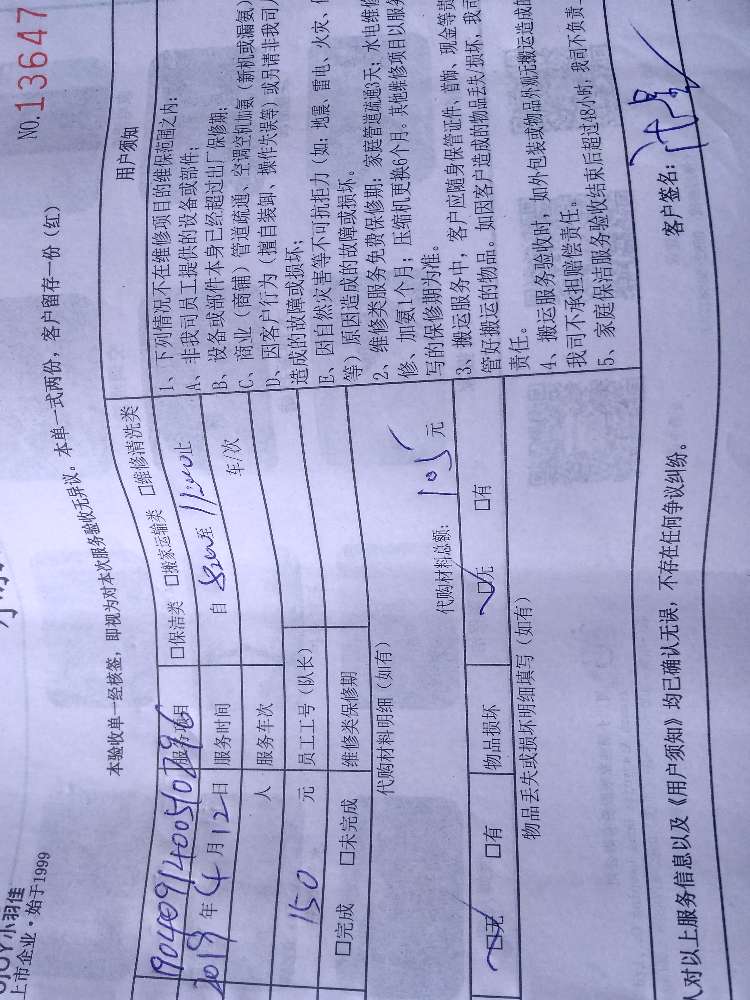 小羽佳
上市企业·始于1999
NO.13647
本验收单一经核签，即视为对本次服务验收无异议。本单一式两份，客户留存一份（红）
190409140050796
服务项目
□保洁类 □搬家运输类 □维修清洗类
2019年4月12日
服务时间
自 8:00 至 11:00止
人
服务车次
车/次
150 元
员工工号（队长）
□完成 □未完成
维修类保修期
代购材料明细（如有）
代购材料总额： 105 元
□无 □有
物品损坏
□无 □有
物品丢失或损坏明细填写（如有）
用户须知
1、下列情况不在维修项目的维保范围之内：
A、非我司员工提供的设备或部件；
B、设备或部件本身已经超过出厂保修期；
C、商业（商铺）管道疏通、空调空机加氨（新机或漏氨）
D、因客户行为（擅自装卸、操作失误等）或另请非我司人
造成的故障或损坏；
E、因自然灾害等不可抗拒力（如：地震、雷电、火灾、
等）原因造成的故障或损坏。
2、维修类服务免费保修期：家庭管道疏通3天；水电维修
修、加氨1个月；压缩机更换6个月。其他维修项目以服务
写的保修期为准。
3、搬运服务中，客户应随身保管证件、首饰、现金等贵
管好搬运的物品。如因客户造成的物品丢失/损坏，我司
责任。
4、搬运服务验收时，如外包装或物品外观无搬运造成的
我司不承担赔偿责任。
5、家庭保洁服务验收结束后超过48小时，我司不负责
人对以上服务信息以及《用户须知》均已确认无误，不存在任何争议纠纷。
客户签名：